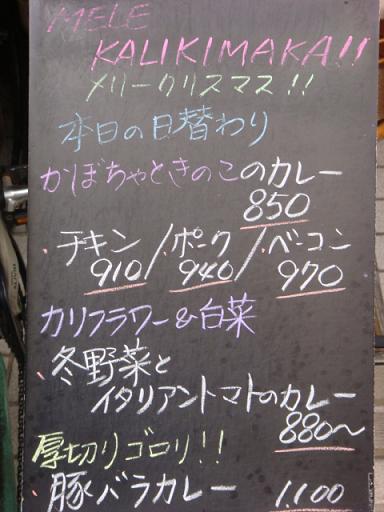 MELE
KALIKIMAKA!!
メリークリスマス!!
本日の日替わり
かぼちゃときのこのカレー
850
・チキン/・ポーク/・ベーコン
910 940 970
カリフラワー&白菜
・冬野菜と
イタリアントマトのカレー
880〜
厚切りゴロリ!!
・豚バラカレー 1100